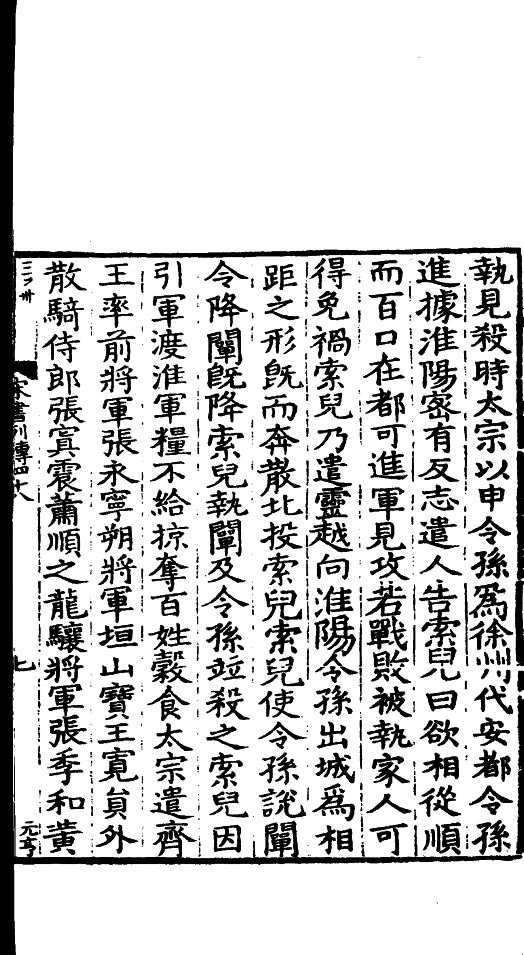 執見殺時太宗以申令孫爲徐州代安都令孫
進據淮陽密有反志遣人告索兒曰欲相從順
而百口在都可進軍見攻若戰敗被執家人可
得免禍索兒乃遣靈越向淮陽令孫出城爲相
距之形旣而奔散北投索兒索兒使令孫說闡
令降闡旣降索兒執闡及令孫竝殺之索兒因
引軍渡淮軍糧不給掠奪百姓穀食太宗遣齊
王率前將軍張永寧朔將軍垣山寶王寛貟外
散騎侍郎張寘震蕭順之龍驤將軍張季和黃
宋書列傳四十八
七
元亨